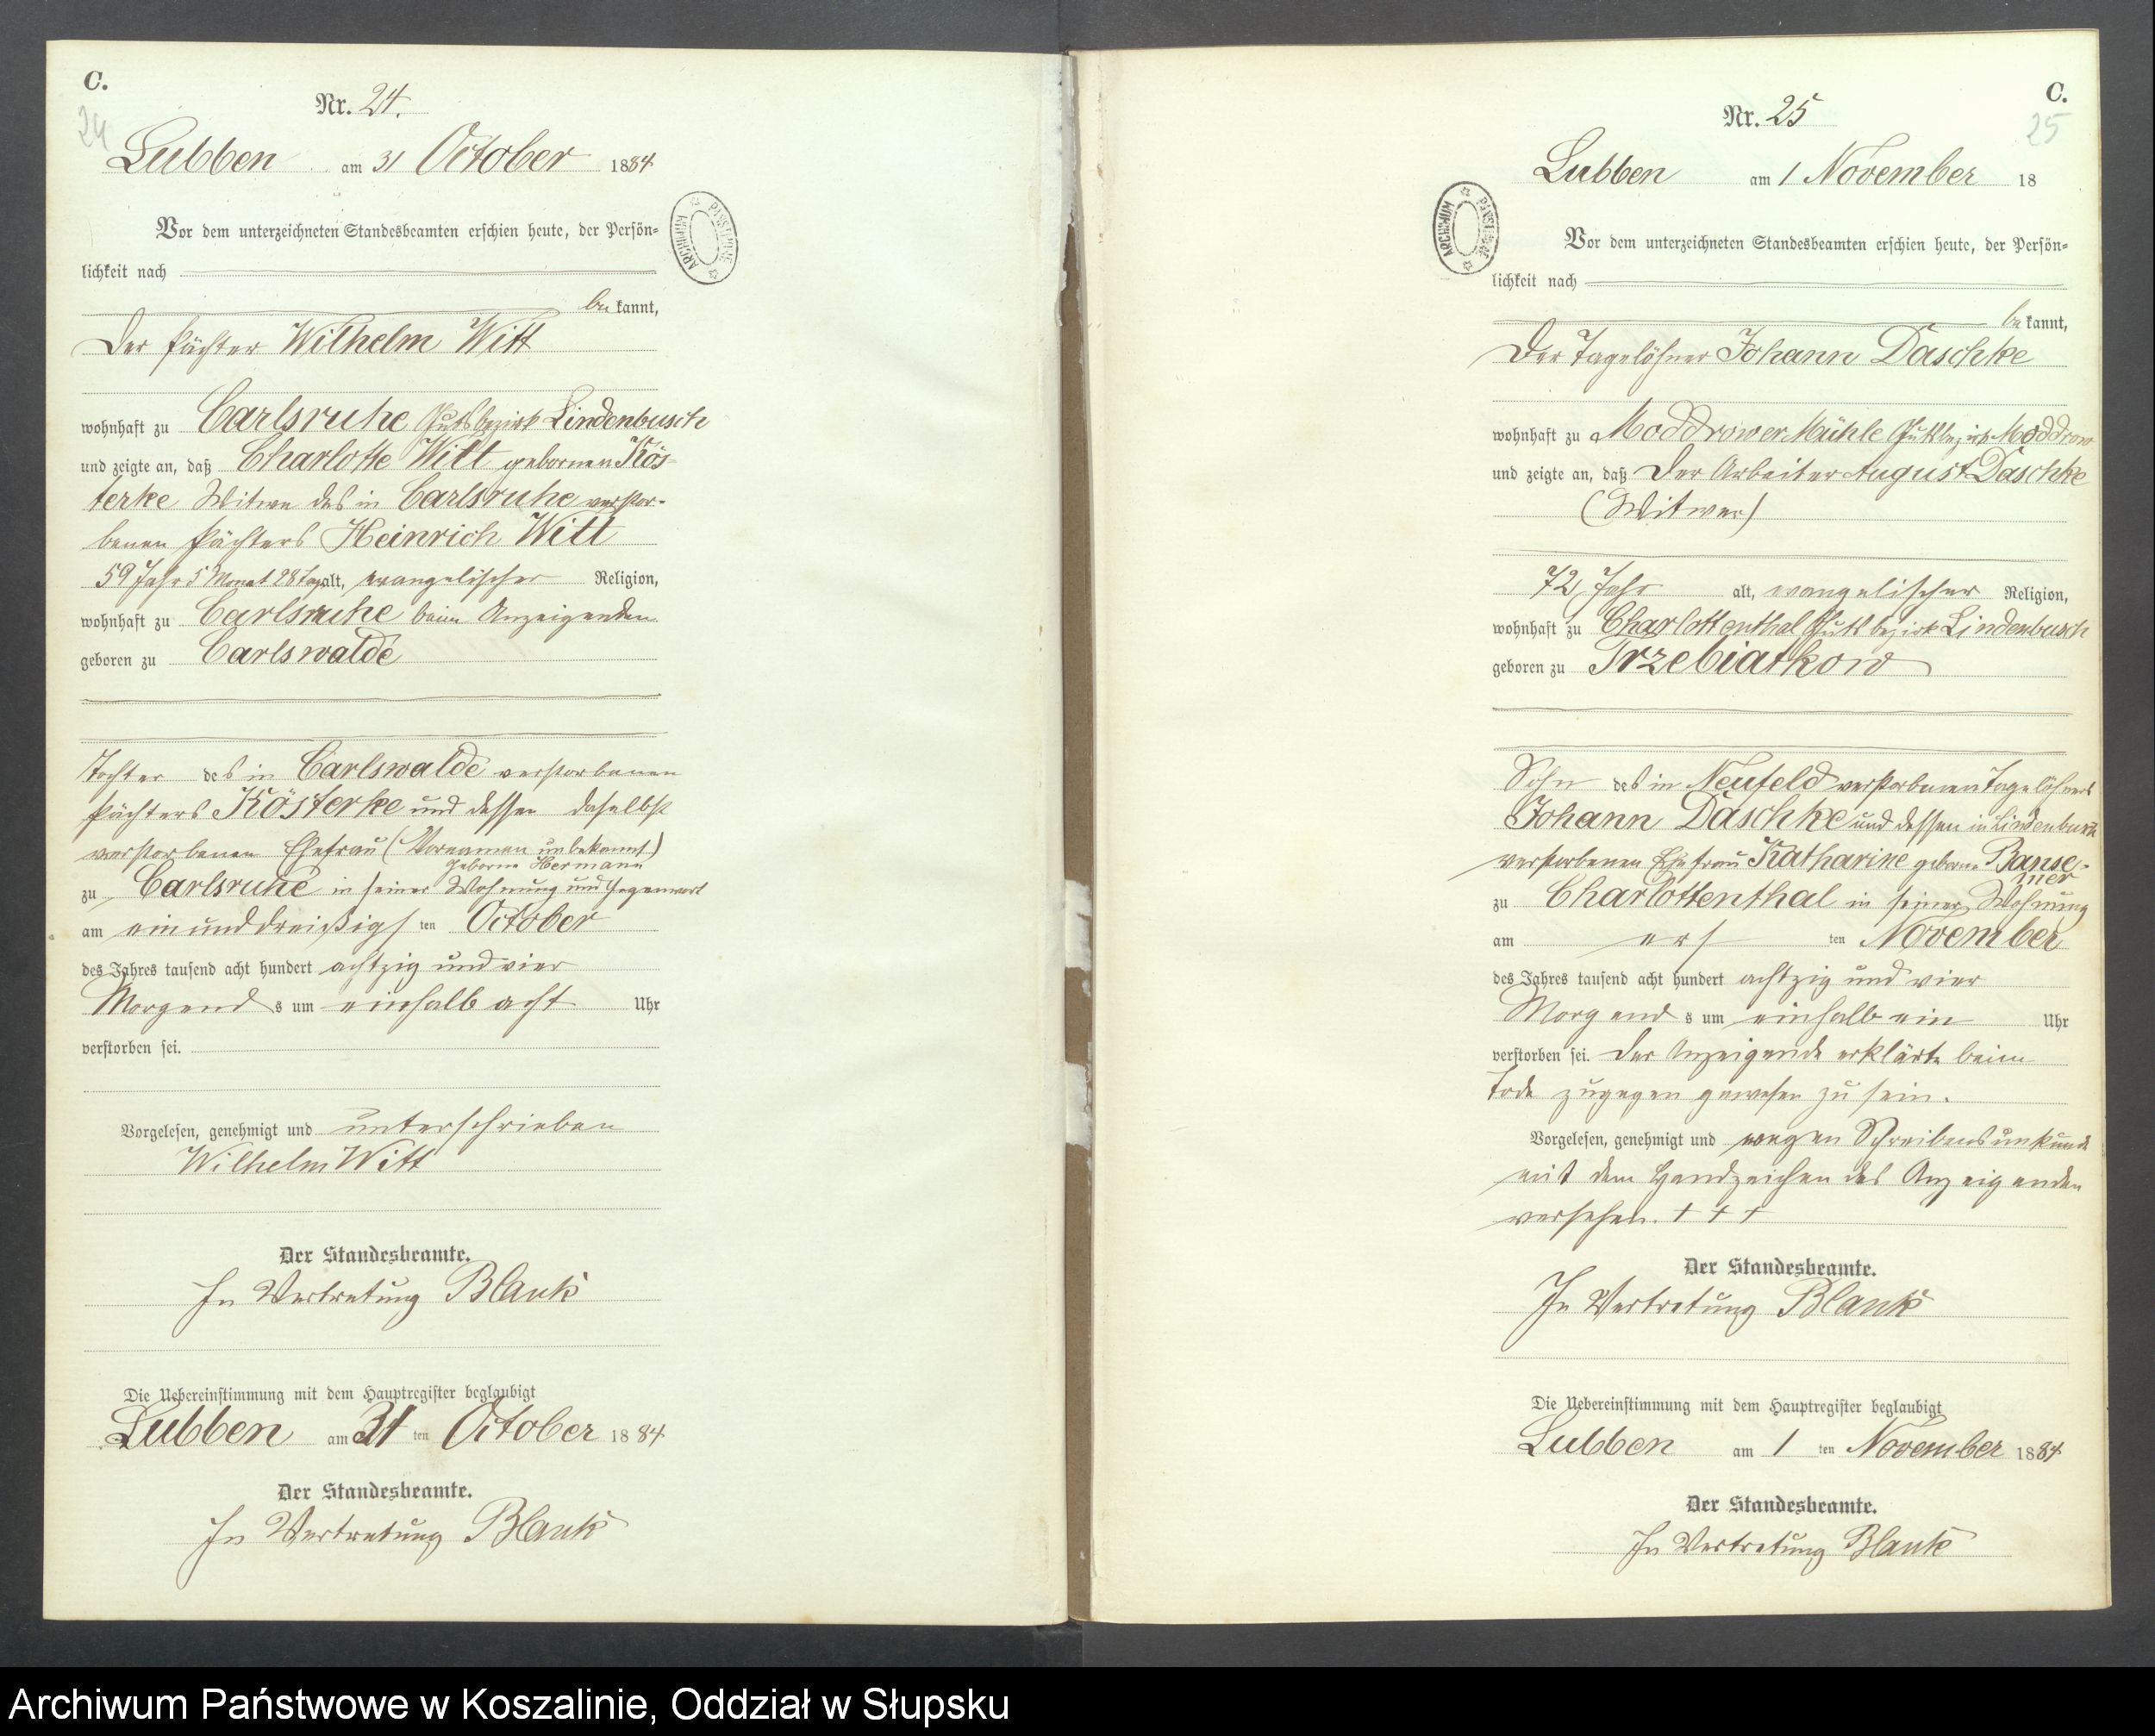 C.
24
Nr. 24.
Lubben am 31 October 1884
Vor dem unterzeichneten Standesbeamten erschien heute, der Persön=
lichkeit nach
bekannt,
Der Pächter Wilhelm Witt
wohnhaft zu Carlsruhe Gutsbezirk Lindenbusch
und zeigte an, daß Charlotte Witt gebornen Kös-
terke Witwe des in Carlsruhe verstor-
benen Pächters Heinrich Witt
59 Jahr 5 Monat 28 Tag alt, evangelischer Religion,
wohnhaft zu Carlsruhe beim Anzeigenden
geboren zu Carlswalde
Tochter des in Carlswalde verstorbenen
Pächters Kösterke und dessen daselbst
verstorbenen Ehefrau (Vornamen unbekannt)
geborne Hermann
zu Carlsruhe in seiner Wohnung und Gegenwart
am einunddreißigsten October
des Jahres tausend acht hundert achtzig und vier
Morgends um einhalb acht Uhr
verstorben sei.
Vorgelesen, genehmigt und unterschrieben
Wilhelm Witt
Der Standesbeamte.
In Vertretung Blank
Die Uebereinstimmung mit dem Hauptregister beglaubigt
Lubben am 31 ten October 1884
Der Standesbeamte.
In Vertretung Blank
ARCHIWUM PAŃSTWOWE
C.
25
Nr. 25
Lubben am 1 November 18
Vor dem unterzeichneten Standesbeamten erschien heute, der Persön=
lichkeit nach
bekannt,
Der Tagelöhner Johann Daschke
wohnhaft zu Moddrower Mühle Gutsbezirk Moddrow
und zeigte an, daß Der Arbeiter August Daschke
(Witwer)
72 Jahr alt, evangelischer Religion,
wohnhaft zu Charlottenthal Gutsbezirk Lindenbusch
geboren zu Trzebiatkow
Sohn des in Neufeld verstorbenen Tagelöhners
Johann Daschke und dessen in Lindenbusch
verstorbenen Ehefrau Katharine geborne Banse-
mer
zu Charlottenthal in seiner Wohnung
am ersten November
des Jahres tausend acht hundert achtzig und vier
Morgends um einhalb ein Uhr
verstorben sei. Der Anzeigende erklärte beim
Tode zugegen gewesen zu sein.
Vorgelesen, genehmigt und wegen Schreibensunkunde
mit dem Handzeichen des Anzeigenden
versehen. + + +
Der Standesbeamte.
In Vertretung Blank
Die Uebereinstimmung mit dem Hauptregister beglaubigt
Lubben am 1 ten November 1884
Der Standesbeamte.
In Vertretung Blank
ARCHIWUM PAŃSTWOWE
Archiwum Państwowe w Koszalinie, Oddział w Słupsku